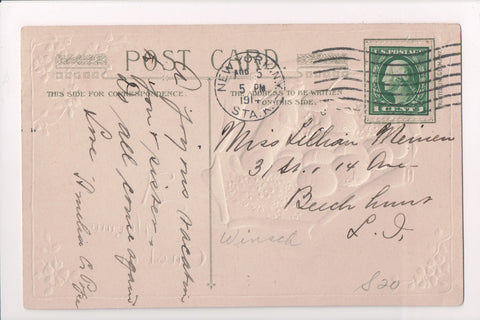 POST CARD
THIS SIDE FOR CORRESPONDENCE.
THE ADDRESS TO BE WRITTEN
ON THIS SIDE.
NEW YORK, N.Y.
5 PM
191
STA.
U.S. POSTAGE
1 CENT 1
joyous vacation
your sister
all come again
Love
Amelia &
Miss Lillian
3 St., 14 Ave
Beechhurst
L. I.
Winsch
$20